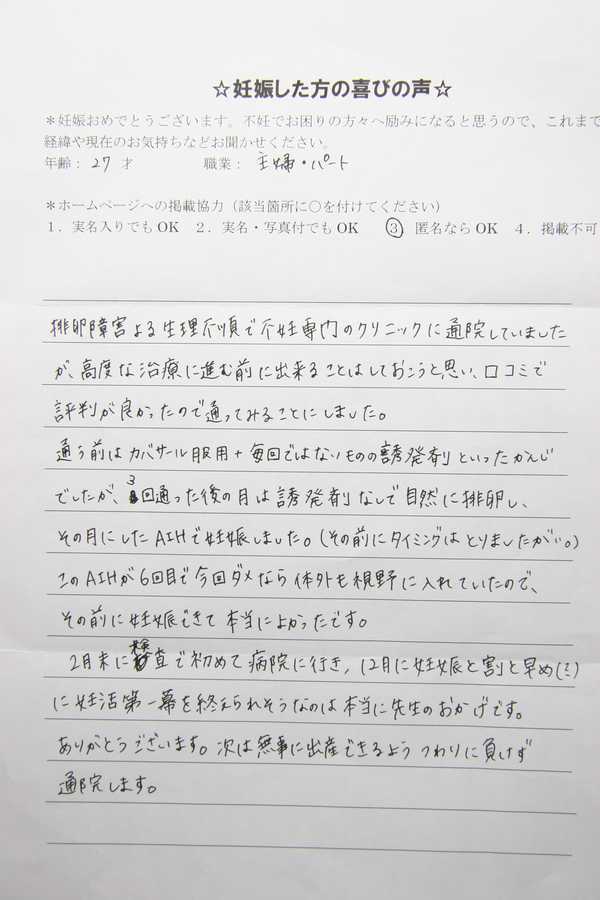 ☆妊娠した方の喜びの声☆
＊妊娠おめでとうございます。不妊でお困りの方々へ励みになると思うので、これまで
経緯や現在のお気持ちなどお聞かせください。
年齢：27才 職業：主婦・パート
＊ホームページへの掲載協力（該当箇所に〇を付けてください）
１．実名入りでもOK ２．実名・写真付でもOK ③ 匿名ならOK ４．掲載不可
排卵障害よる生理不順で不妊専門のクリニックに通院していました
が、高度な治療に進む前に出来ることはしておこうと思い、口コミで
評判が良かったので通ってみることにしました。
通う前はカバサール服用＋毎回ではないものの誘発剤といったかんじ
でしたが、3回通った後の月は誘発剤なしで自然に排卵し、
その月にしたAIHで妊娠しました。(その前にタイミングはとりましたが…。)
このAIHが6回目で今回ダメなら体外も視野に入れていたので、
その前に妊娠できて本当によかったです。
2月末に検査で初めて病院に行き、12月に妊娠と割と早め(?)
に妊活第一幕を終えられそうなのは本当に先生のおかげです。
ありがとうございます。次は無事に出産できるようつわりに負けず
通院します。